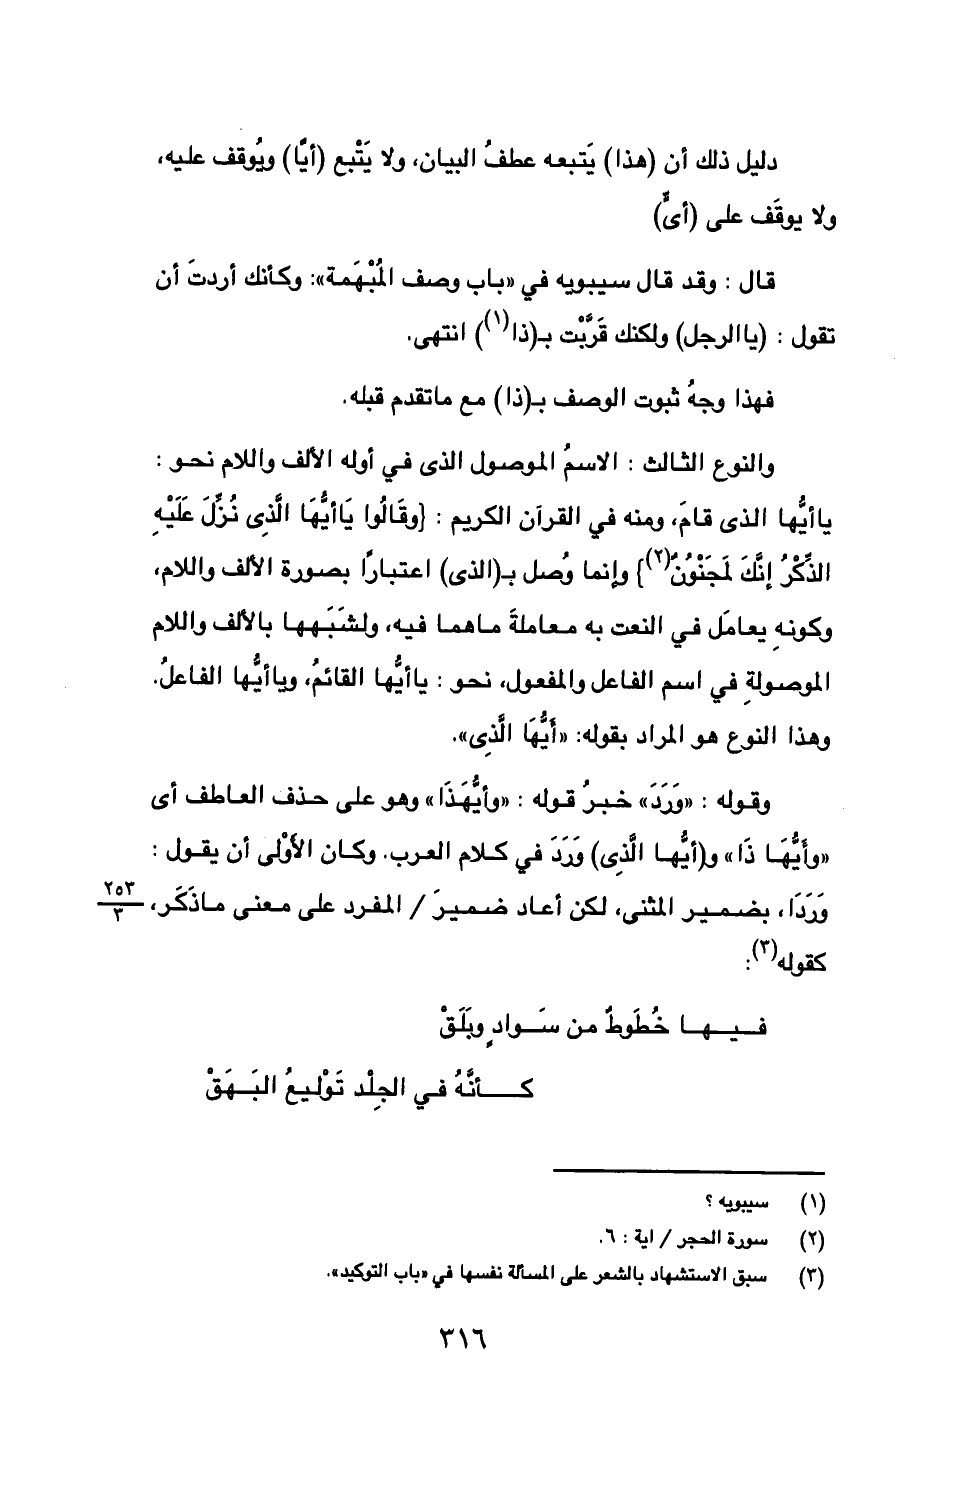 دليل ذلك أن (هذا) يَتبعه عطفُ البيان، ولا يَتْبع (أيًّا) ويُوقف عليه،
ولا يوقَف على (أىٍّ)
قال : وقد قال سيبويه في «باب وصف المُبْهَمة»: وكأنك أردتَ أن
تقول : (ياالرجل) ولكنك قَرَّبْت بـ(ذا(١)) انتهى.
فهذا وجهُ ثبوت الوصف بـ(ذا) مع ماتقدم قبله.
والنوع الثالث : الاسمُ الموصول الذى في أوله الألف واللام نحو :
ياأيُّها الذى قامَ، ومنه في القرآن الكريم : {وقَالُوا يَاأيُّهَا الَّذِى نُزِّلَ عَلَيْهِ
الذِّكْرُ إنَّكَ لَمجَنْوُنٌ(٢)} وإنما وُصل بـ(الذى) اعتبارًا بصورة الألف واللام،
وكونِه يعامَل في النعت به معاملةَ ماهما فيه، ولشَبَهها بالألف واللام
الموصولةِ في اسم الفاعل والمفعول، نحو : ياأيُّها القائمُ، وياأيُّها الفاعلُ.
وهذا النوع هو المراد بقوله: «أَيُّهَا الَّذِى».
وقوله : «وَرَدَ» خبرُ قوله : «وأيُّهَذَا» وهو على حذف العاطف أى
«وأَيُّهَا ذَا» و(أيُّها الَّذِى) وَرَدَ في كلام العرب. وكان الأوْلى أن يقول :
وَرَدَا، بضمير المثنى، لكن أعاد ضميرَ / المفرد على معنى ماذَكَر، ٢٥٣/٣
كقوله(٣):
فيها خُطَوطٌ من سَوادٍ وبَلَقْ
كأنَّهُ في الجِلْد تَوْليعُ البَهَقْ
(١) سيبويه ؟
(٢) سورة الحجر / اية : ٦.
(٣) سبق الاستشهاد بالشعر على المسألة نفسها في «باب التوكيد».
٣١٦